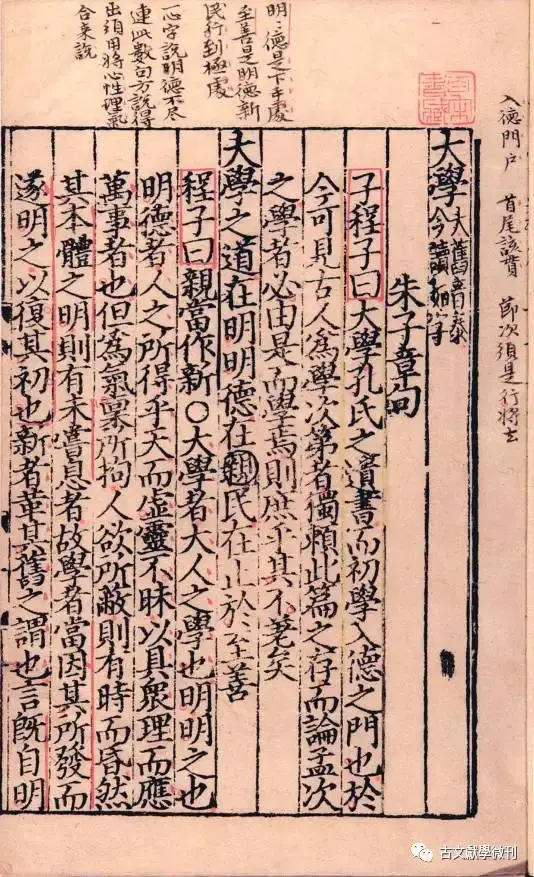 入德門户 首尾該貫 節次須是行將去
明〻德是下手處
至善是明德新
民行到極處
一心字說明德不盡
連此數句方說得
出須用將心性理氣
合來說
大學 大舊音泰
今讀如字
朱子章句
子程子曰大學孔氏之遺書而初學入德之門也於
今可見古人爲學次第者獨賴此篇之存而論孟次
之學者必由是而學焉則庶乎其不差矣
大學之道在明明德在親民在止於至善
程子曰親當作新○大學者大人之學也明明之也
明德者人之所得乎天而虛靈不昧以具衆理而應
萬事者也但爲氣稟所拘人欲所蔽則有時而昏然
其本體之明則有未嘗息者故學者當因其所發而
遂明之以復其初也新者革其舊之謂也言旣自明
古文獻學微刊